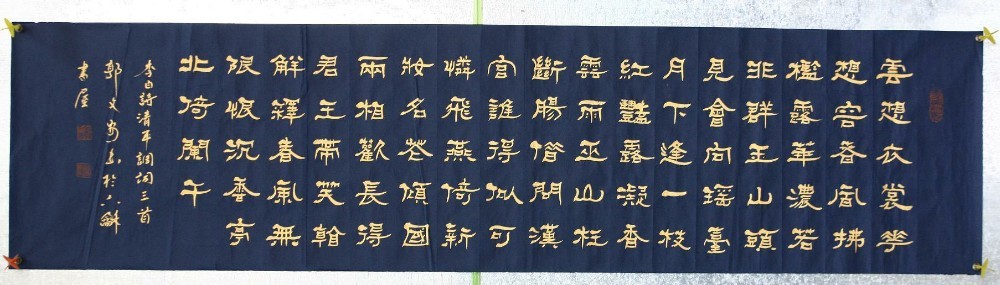 雲想衣裳花
想容春風拂
檻露華濃若
非群玉山頭
見會向瑤臺
月下逢一枝
紅豔露凝香
雲雨巫山枉
斷腸借問漢
宮誰得似可
憐飛燕倚新
妝名花傾國
兩相歡長得
君王帶笑看
解釋春風無
限恨沉香亭
北倚闌干
李白詩清平調詞三首
郭文安書於
書屋